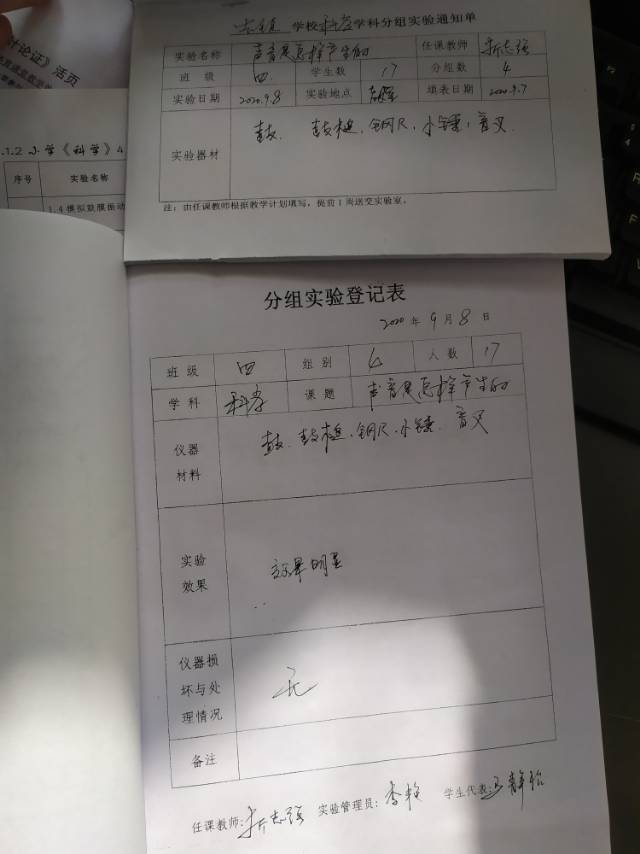 计论证》活页
.1.2 小学《科学》4
序号 实验名称
1.4 模拟鼓膜振动
学校科学学科分组实验通知单
实验名称 声音是怎样产生的 任课教师 靳志强
班级 四 学生数 17 分组数 4
实验日期 2020.9.8 实验地点 填表日期 2020.9.7
实验器材 鼓、鼓槌、钢尺、小锤、音叉
注：由任课教师根据教学计划填写，提前1周送交实验室。
分组实验登记表
2020年9月8日
班级 四 组别 4 人数 17
学科 科学 课题 声音是怎样产生的
仪器材料 鼓、鼓槌、钢尺、小锤、音叉
实验效果 效果明显
仪器损坏与处理情况 无
备注
任课教师：靳志强 实验管理员： 学生代表：